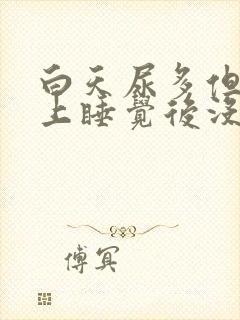 白天尿多但
上睡覺後沒
傅冥